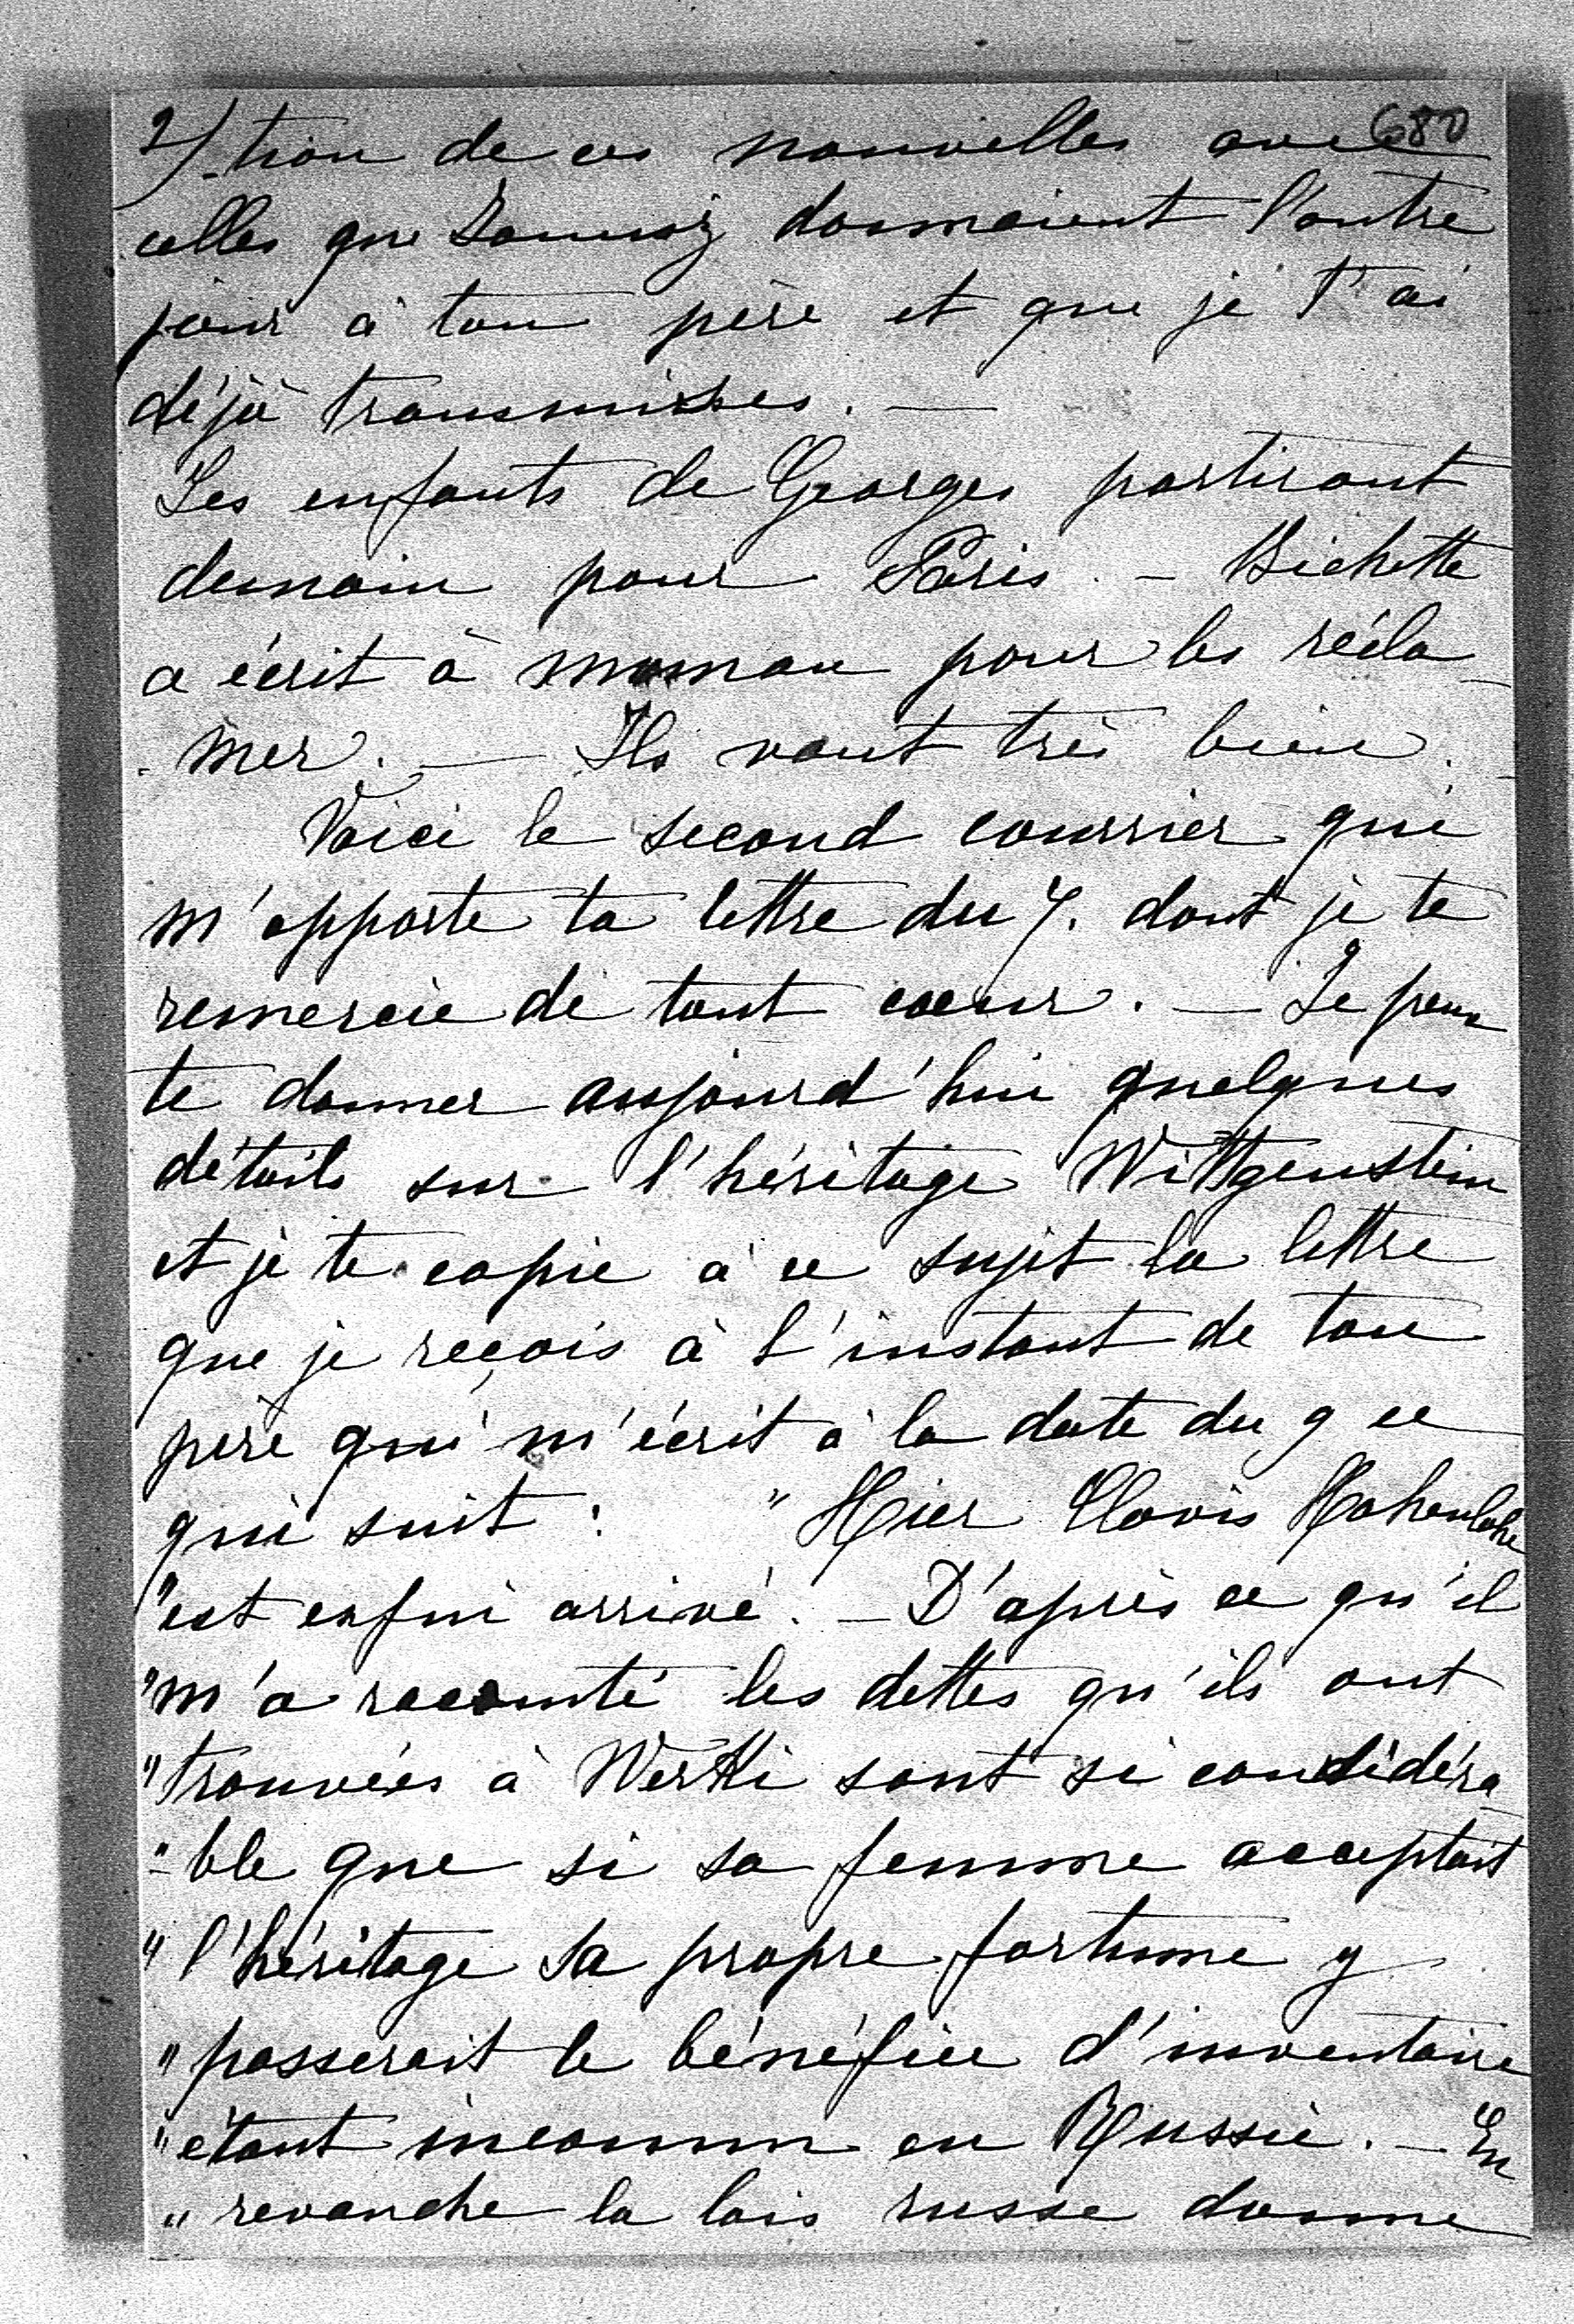 2/ 680
-tion de ces nouvelles avec
celles que donnaient l'autre
jour à ton père et que je t'ai
déjà transmises. —
Les enfants de Georges partiront
demain pour Paris. — Bichette
a écrit à maman pour les récla-
-mer. — Ils vont très bien.
Voici le second courrier qui
m'apporte ta lettre du 7. dont je te
remercie de tout coeur. — Je peux
te donner aujourd'hui quelques
détails sur l'héritage Wittgenstein
et je te copie à ce sujet la lettre
que je reçois à l'instant de ton
père qui m'écrit à la date du 9 ce
qui suit : "Hier Clovis Hohenlohe
"est enfin arrivé. — D'après ce qu'il
"m'a raconté les dettes qu'ils ont
"trouvées à Werki sont si considéra
"-ble que si sa femme acceptait
"l'héritage sa propre fortune y
"passerait le bénéfice d'inventaire
"étant inconnu en Russie. — En
"revanche la lois russe donne